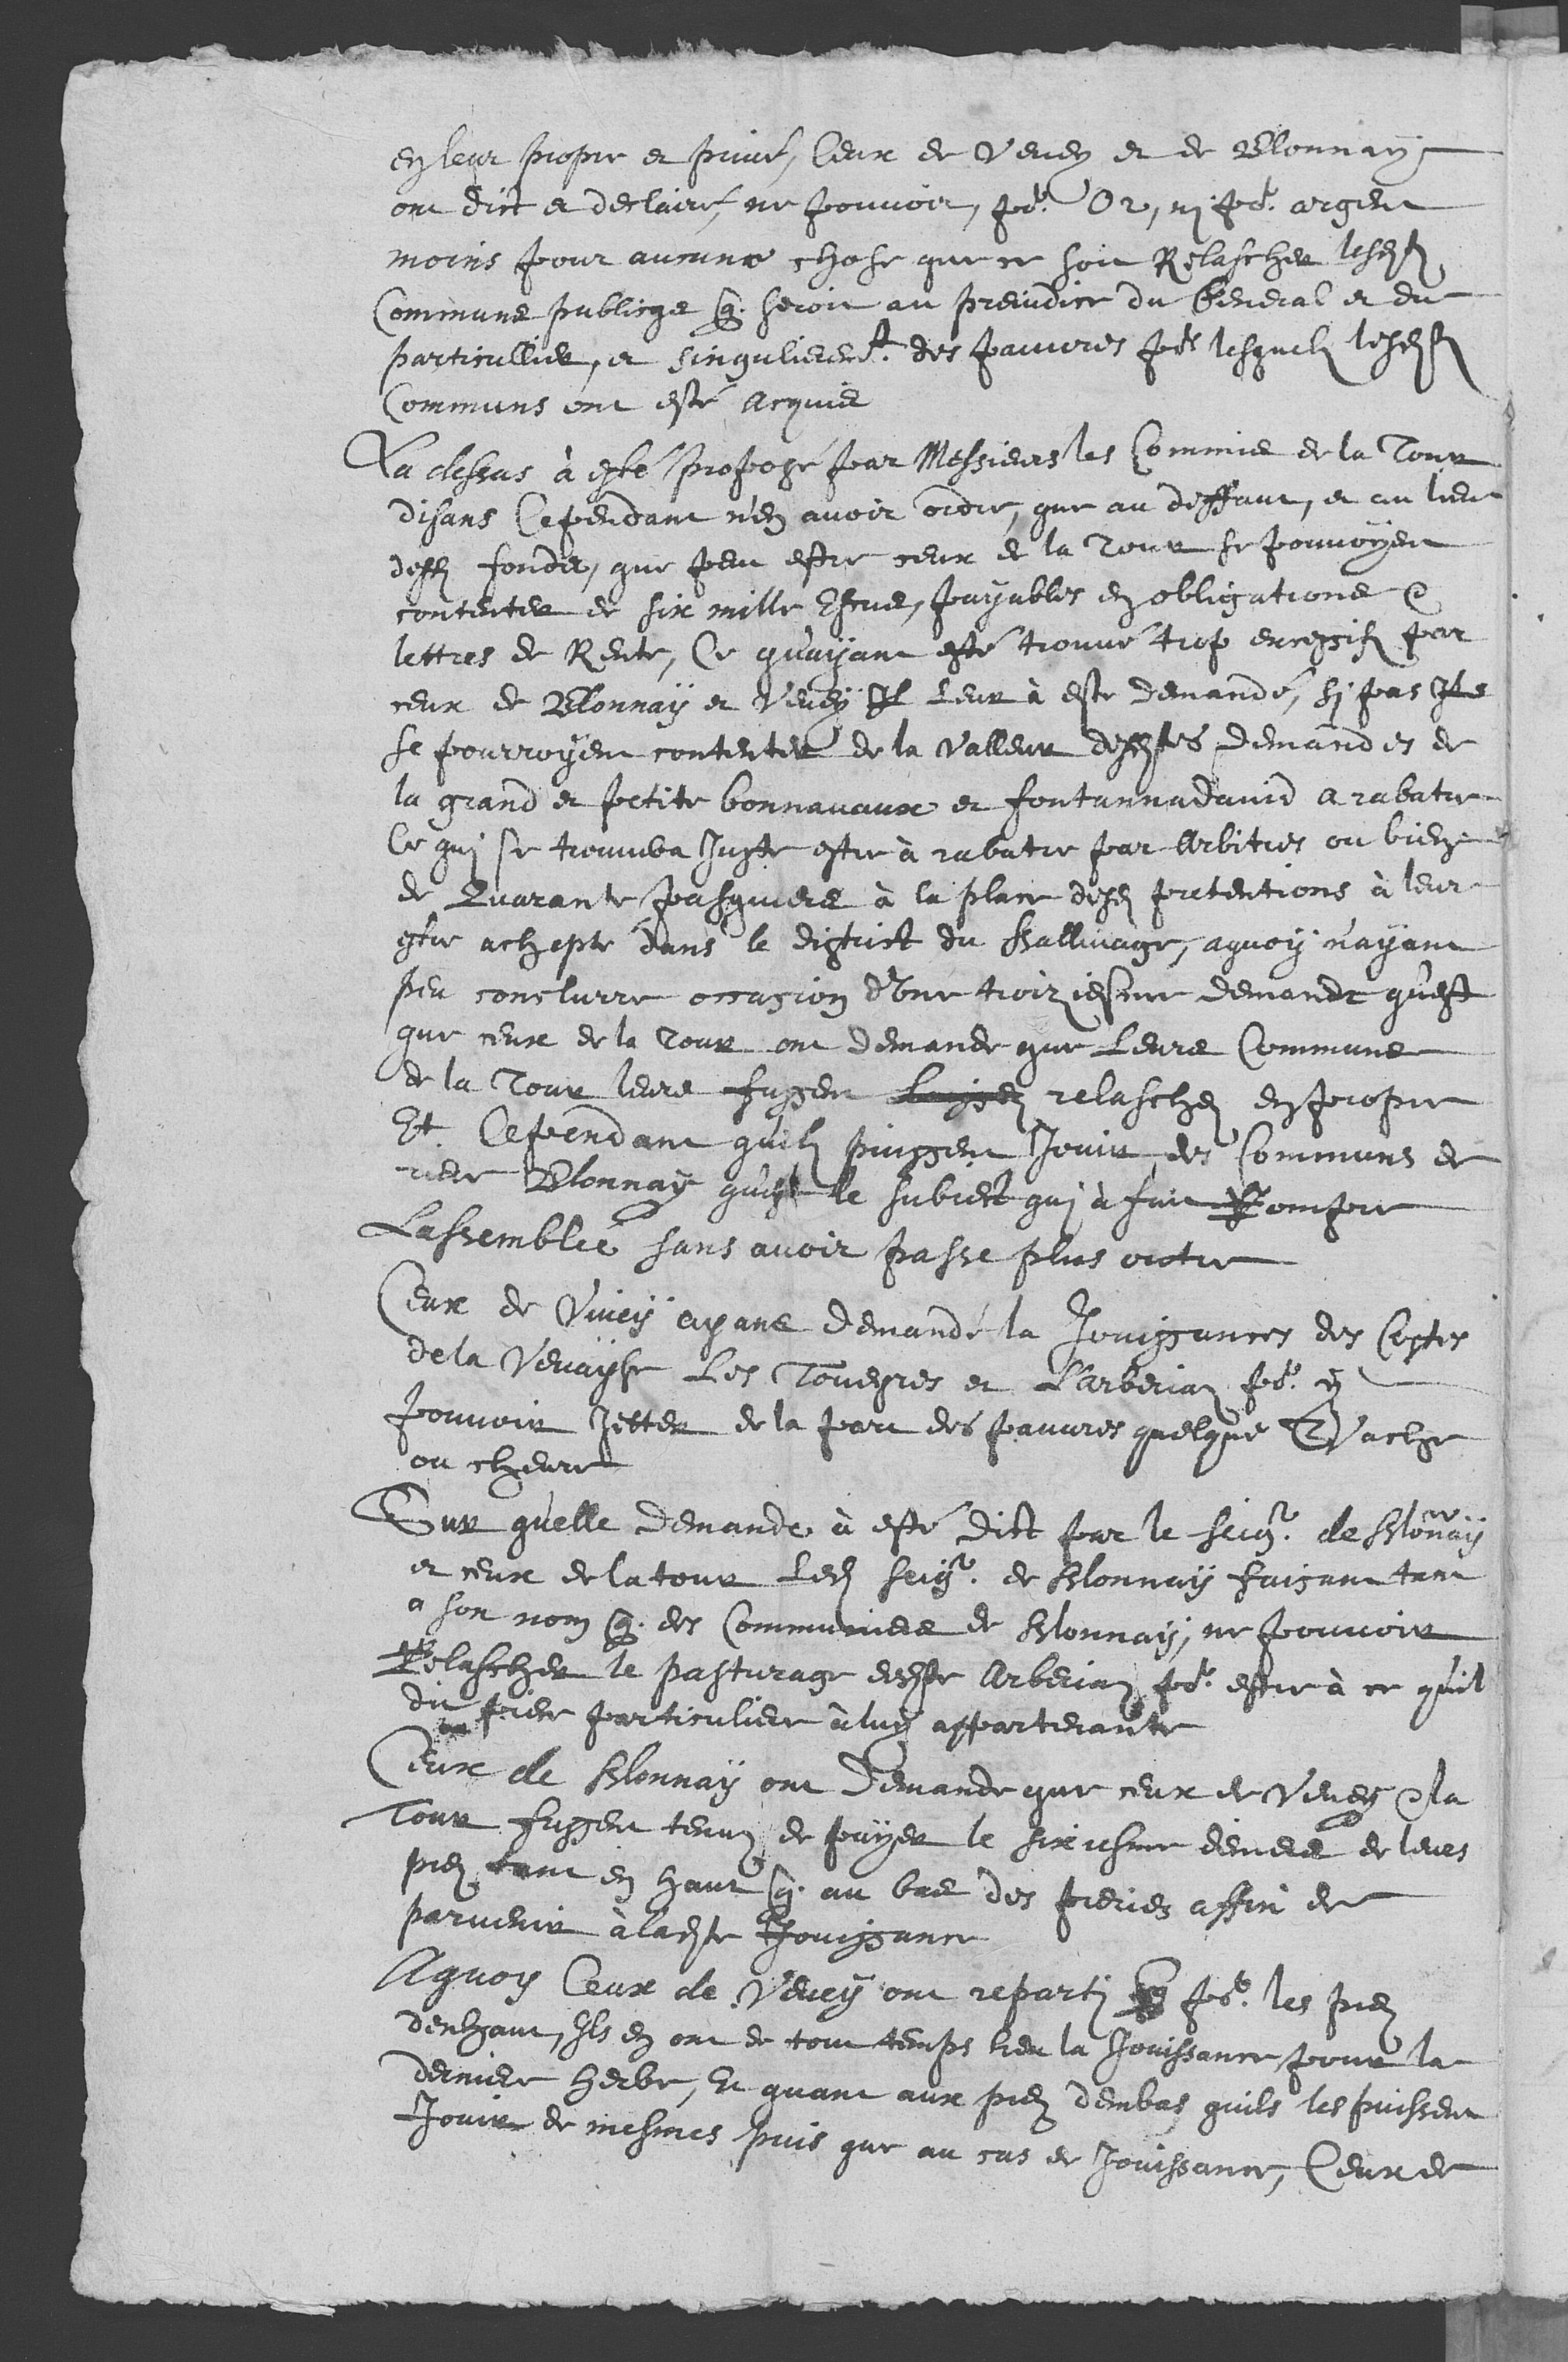 en leur propre et privé, Ceux de Vevey et de Blonnay
ont dict et declairé, ne pouvoir, por. Or, ni por. argent
moins pour aucune chose que ce soit Relascher lesds
Communs publicqs q. seroit au preiudice du General et du
particullier, et singulieremt. des pauvres pors lesquels lesds
Communs ont esté acquis
La dessus à esté proposé par Messieurs les Commis de la Tour
disans Cependant n'en avoir ordre, que au deffaut, et au lieu
desd fonds, que peut estre ceux de la Tour se pouvoyent
contenter de six mille Escus, payables en obligations &
lettres de Rente, Ce qu'ayant esté trouvé trop excessif par
ceux de Blonnay et Vevey Il Leur à este demandé, si pas Ils
se pourroyent contenter de la Valleur desdtes demandes de
la grand et petite bonnavaux et fontannadavid a rabatre
Ce qui se trouvera Juste estre à rabatre par Arbitres ou bien
de Quarante pasquiers à la place desd pretentions à leur
estre achepté dans le district du Ballivage, aquoy n'ayant
peu conclurre occasion d'Une troiziesme demande qu'est
que ceux de la Tour ont demande que Leurs Communs
de la Tour leurs fussent relaschez en propre
Et. Cependant quils puissent Jouir des Communs de
riere Blonnay qu'est le subiect qui à fait Rompre
Lassemblée sans avoir passe plus outre
Ceux de Vivey ayans demandé la Jouissances des Costes
de la Vevayse Les Toveyres et L'arberiaz por. y
pouvoir Jetter de la part des pauvres quelque Vache
ou chevre
Sur quelle demande à esté dict par le seigr. de Blonay
et ceux de la tour Led seigr. de Blonnay faisant tant
a son nom q. des Communiers de Blonnay, ne pouvoir
Relascher le pasturage dedte Arberiaz por. estre à ce qu'il
dit piece particuliere à luy appartenante
Ceux de Blonnay ont demande que ceux de Vevey & la
Tour fussent tenuz de payer le sixiesme deniers de leurs
prez tant en haut q. au bas des pieries affin de
parvenir à ladte Jouissance
Aquoy Ceux de Vevey ont reparti por. les prez
denhaut, Ils en ont de tout temps heu la Jouissance pour la
derniere herbe, Et quant aux prez dembas quils les puissent
Jouir de mesmes puis que au cas de Jouissance, Ceux de